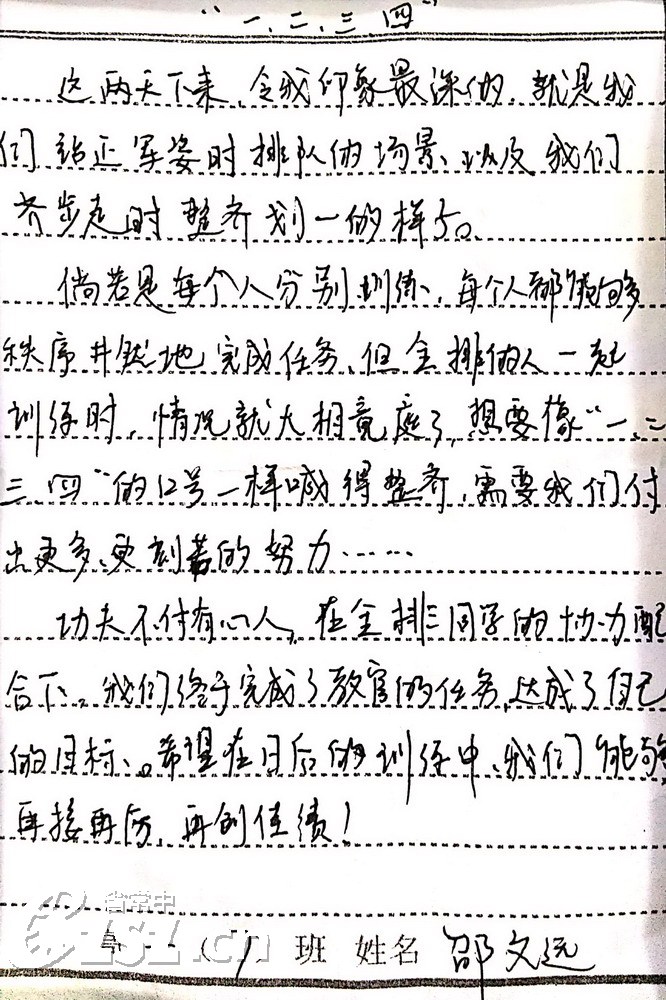 “一、二、三、四”
这两天下来，令我印象最深的，就是我
们站正军姿时排队的场景、以及我们
齐步走时整齐划一的样子。
倘若是每个人分别训练、每个人都能够
秩序井然地完成任务，但全排的人一起
训练时，情况就大相竟庭了，想要像“一、二
三四”的口号一样喊得整齐，需要我们付
出更多、更刻苦的努力……
功夫不付有心人，在全排三同学的协力配
合下，我们终于完成了教官的任务，达成了自己
的目标、。希望在日后的训练中，我们能够
再接再厉，再创佳绩！
高一（1）班 姓名 邵文远
省常中